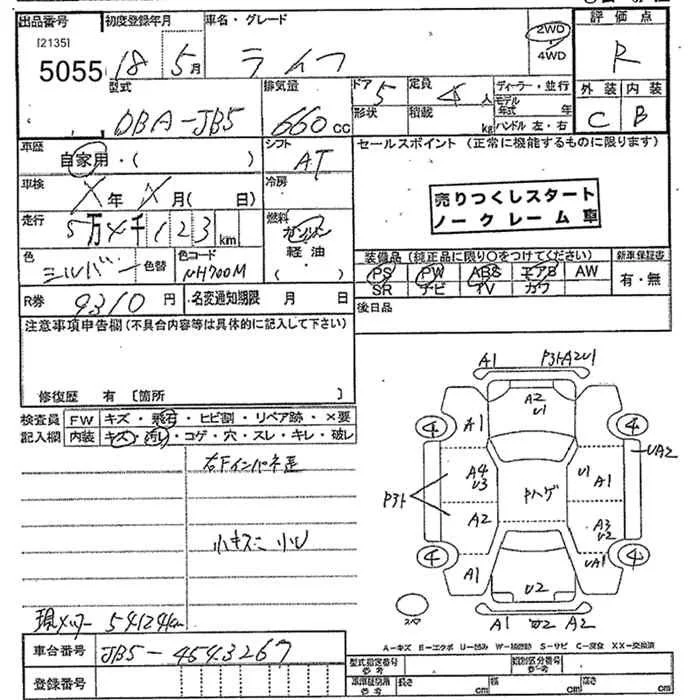 出品番号 初度登録年月 車名・グレード 評価点
[2135]
5055 18 5月 ライフ 2WD 4WD R
外装 内装
C B
型式 排気量 ドア 定員 ディーラー・並行
DBA-JB5 660 cc 5 4人 モデル年式 年
形状 積載 kg ハンドル 左・右
車歴 自家用・( ) シフト AT
セールスポイント (正常に機能するものに限ります)
車検 X年X月( 日) 冷房
売りつくしスタート
ノークレーム車
走行 5万4千123km 燃料 ガソリン 軽油
色 シルバー 色替 色コード NH700M
装備品 (純正品に限り○をつけてください) 新車保証書
PS PW ABS エアB AW 有・無
SR ナビ TV カワ
R券 9310円 名変通知期限 月 日
後日品
注意事項申告欄(不具合内容等は具体的に記入して下さい)
修復歴 有 [箇所 ]
検査員 FW キズ・飛石・ヒビ割・リペア跡・×要
記入欄 内装 キズ・汚レ・コゲ・穴・スレ・キレ・破レ
右Fインパネ歪
小キズ 小U
現メーター 54124km
A1 P3トA2U1
A1 A2 U1
4 4
UA2
A4 U3 U1 A1
P3ト Pハゲ
A2 A3 U2
4 4
A1 U2 UA1
A1 A2
A-キズ E-エクボ U-凹み W-補修跡 S-サビ C-腐食 XX-交換済
車台番号 JB5-4543267
型式指定番号 参考 類別区分番号 参考
登録番号
車庫証明用 参考 長さ cm 幅 cm 高さ cm